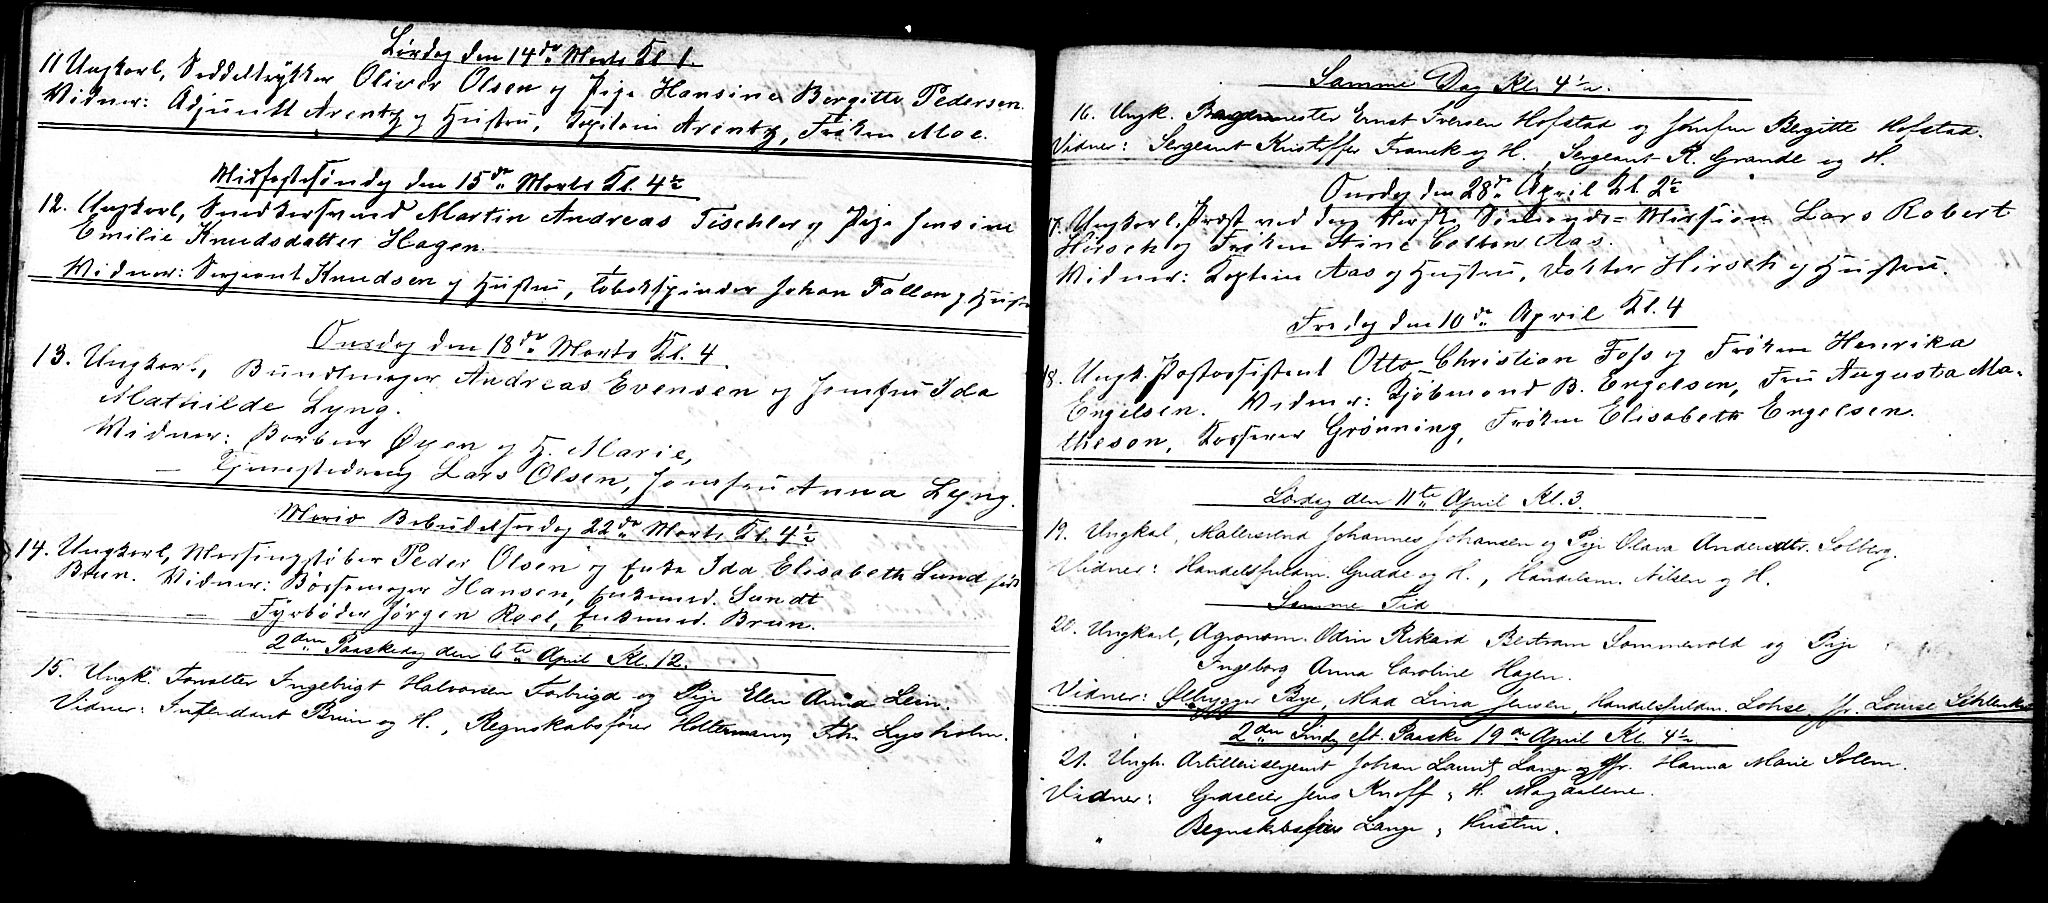 Lørdag den 14de Marts Kl. 1.
11 Ungkarl, Seddeltrykker Oliver Olsen og Pige Hansine Bergitte Pedersen.
Vidner: Adjunkt Arentz og Hustru, Kaptein Arentz, Frøken Moe.
Midfastesøndag den 15de Marts Kl. 4½
12. Ungkarl, Snedkersvend Martin Andreas Tischler og Pige Jensine
Emilie Knudsdatter Hagen.
Vidner: Sergeant Knudsen og Hustru, Tobakspinder Johan Fallan og Hustr
Onsdag den 18de Marts Kl. 4
13. Ungkarl, Bundtmager Andreas Evensen og Jomfru Ida
Mathilde Lyng.
Vidner: Barber Øyen og H. Marie,
— Lars Olsen, Jomfru Anna Lyng.
Mariæ Bebudelsesdag 22de Marts Kl. 4½
14. Ungkarl, Messingstøber Peder Olsen og Enke Ida Elisabeth Lund født
Brun. Vidner: Børsemager Hansen, Enkemd. Sundt
— Fyrbøder Jørgen Roel, Enkemd. Brun.
2den Paaskedag den 6te April Kl. 12.
15. Ungk. Forvalter Ingebrigt Halvorsen Forbrigd og Pige Elen Anna Lein.
Vidner: Intendant Bruun og H., Regnskabsfører Holtermann, Frk. Lysholm.
Samme Dag Kl. 4½.
16. Ungk. Bagermester Ernst Iversen Hofstad og Jomfru Bergitte Hofstad.
Vidner: Sergeant Kristoffer Franck og H., Sergeant R. Grande og H.
Onsdag den 28de April Kl. 2½
17. Ungkarl, Præst ved den Norske Missionen Lars Robert
Hirsch og Frøken Stine Colban Aas.
Vidner: Kaptein Aas og Hustru, Doktor Hirsch og Hustru.
Fredag den 10de April Kl. 4
18. Ungk. Postassistent Otto Christian Foss og Frøken Henrika
Engelsen. Vidner: Kjøbmand B. Engelsen, Fru Augusta Ma-
theson, Kasserer Grønning, Frøken Elisabeth Engelsen.
Lørdag den 11te April Kl. 3.
19. Ungkal, Malersvend Johannes Johansen og Pige Olava Andersdtr. Solberg.
Vidner: Handelsfuldm. Gudde og H., Handelsm. Nilsen og H.
Samme Tid
20. Ungkarl, Agronom. Odin Rikard Bertram Sommervold og Pige
Ingeborg Anna Caroline Hagen.
Vidner: Ølbrygger Bye, Mad Lina Jensen, Handelsfuldm. Lohse, Jfr. Louise
2den Søndg eft. Paaske 19de April Kl. 4½
21. Ungk. Artillerisergeant Johan Lauritz Lange og Jfr. Hanna Marie Solem.
Vidner: Graveer Jens Knoff og H. Magdalene.
" Regnskabsfører Lange og Hustru.